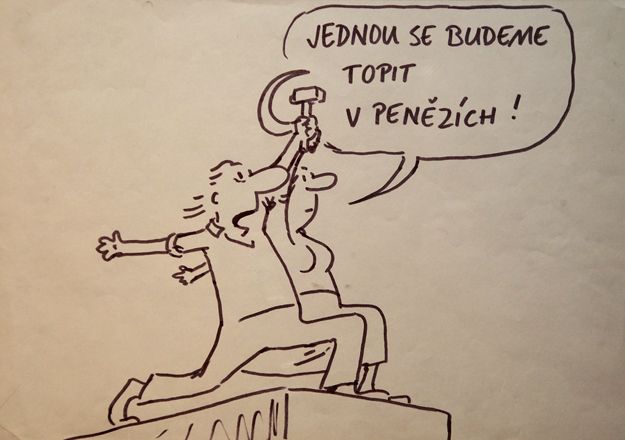 JEDNOU SE BUDEME
TOPIT
V PENĚZÍCH!